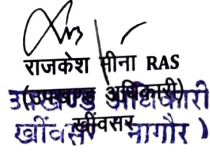 राजकेश मीना RAS
(उपखण्ड अधिकारी)
खींवसर
उपखण्ड अधिकारी
खींवसर नागौर )